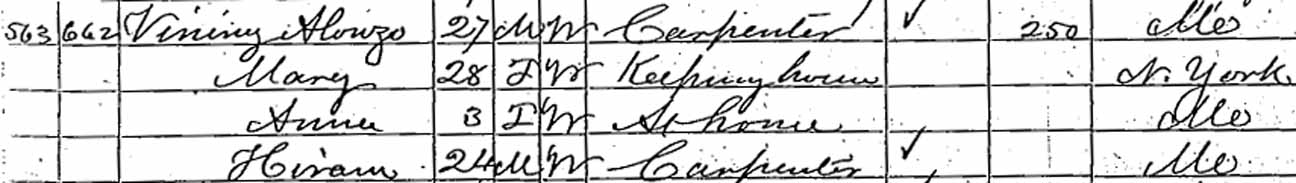 563 662 Vining Alonzo 27 M W Carpenter ✓ 250 Me
Mary 28 F W Keeping house N. York
Anna 3 F W At home Me
Hiram 24 M W Carpenter ✓ Me